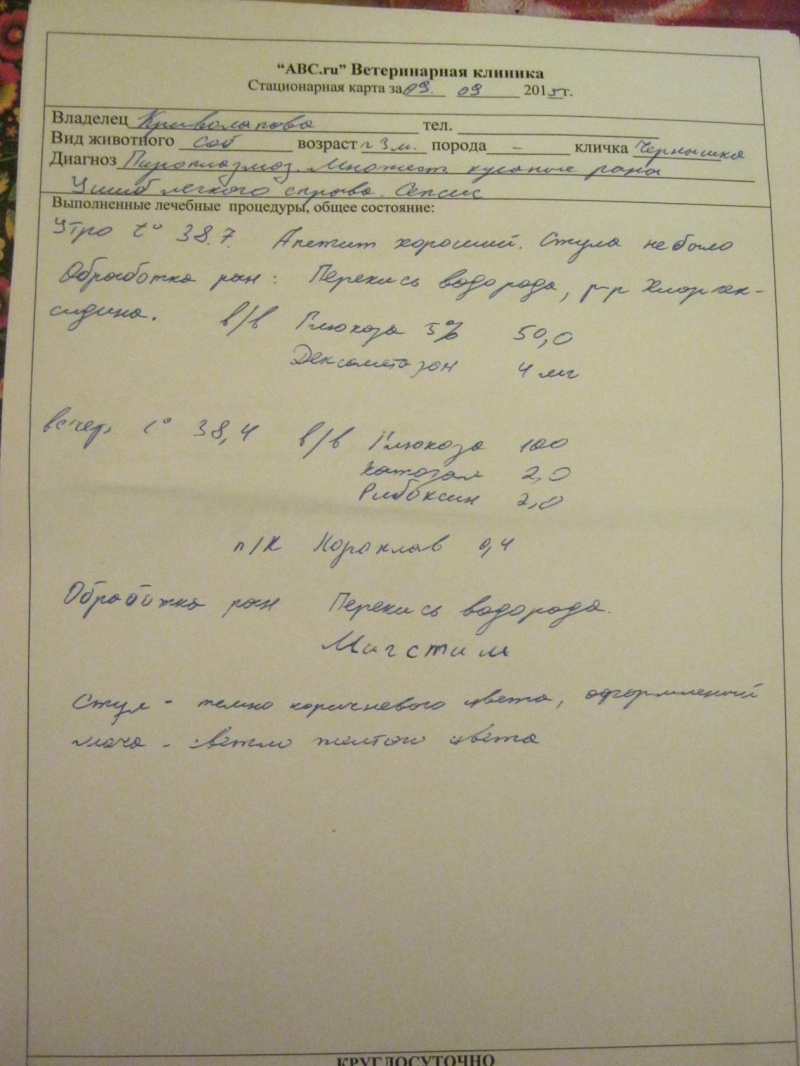 “ABC.ru” Ветеринарная клиника
Стационарная карта за 09. 09 2015 г.
Владелец Криволапова тел.
Вид животного соб возраст 3 м. порода – кличка Чернышка
Диагноз Пироплазмоз. Множест кусаные раны
Ушиб легкого справа. Сепсис
Выполненные лечебные процедуры, общее состояние:
Утро t° 38.7. Апетит хороший. Стула не было
Обработка ран: Перекись водорода, р-р Хлоргек-
сидина. в/в Глюкоза 5% 50,0
Дексаметазон 4 мг
вечер t° 38,4 в/в Глюкоза 100
Катозал 2,0
Рибоксин 2,0
п/к Нороклав 0,4
Обработка ран Перекись водорода.
Мигстим
Стул - темно коричневого цвета, оформленый
моча - светло желтого цвета
КРУГЛОСУТОЧНО